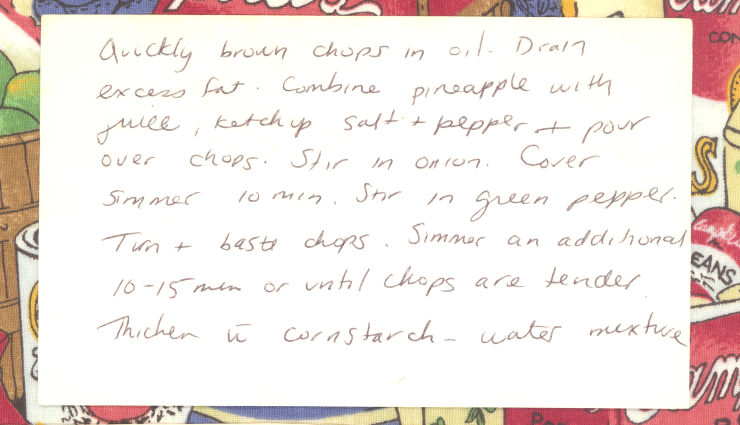 Quickly brown chops in oil. Drain
excess fat. Combine pineapple with
juice, ketchup salt + pepper + pour
over chops. Stir in onion. Cover
Simmer 10 min. Stir in green pepper.
Turn + baste chops. Simmer an additional
10-15 min or until chops are tender
Thicken c̄ cornstarch - water mixture
CON
S
Campbell
EANS